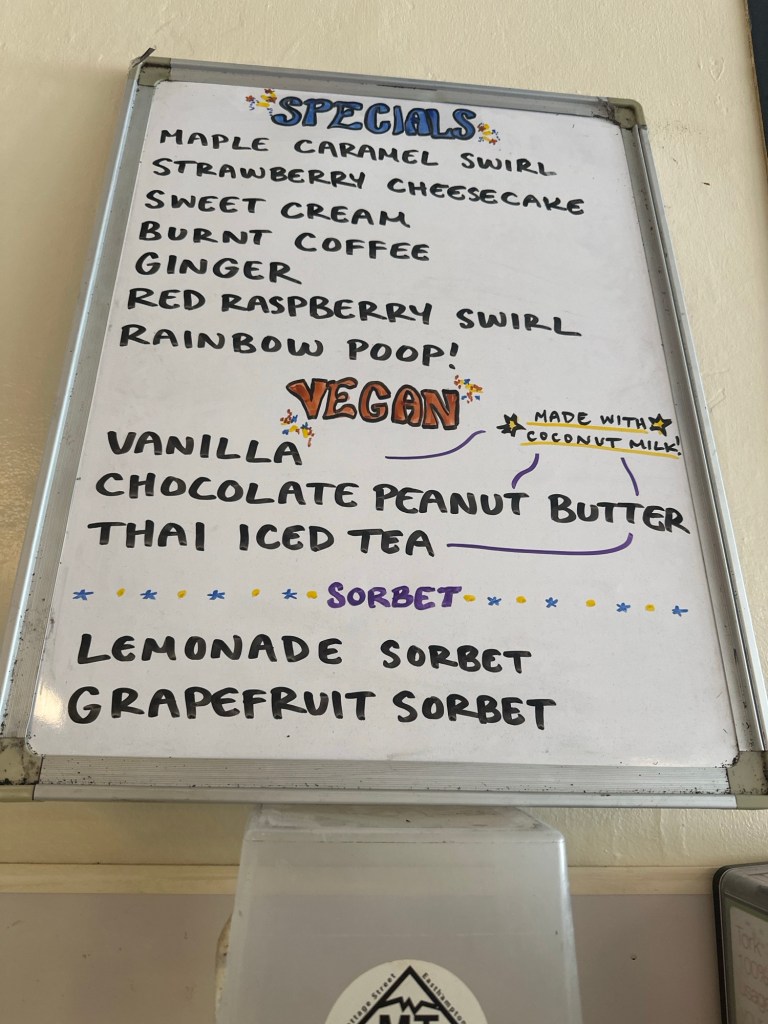 SPECIALS
MAPLE CARAMEL SWIRL
STRAWBERRY CHEESECAKE
SWEET CREAM
BURNT COFFEE
GINGER
RED RASPBERRY SWIRL
RAINBOW POOP!
VEGAN
MADE WITH
COCONUT MILK!
VANILLA
CHOCOLATE PEANUT BUTTER
THAI ICED TEA
SORBET
LEMONADE SORBET
GRAPEFRUIT SORBET
Street Easthampton
MT